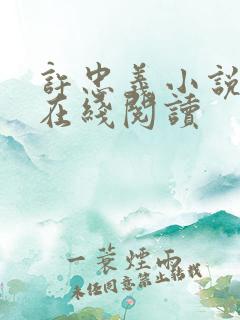 許忠義小說
在綫閱讀
一蓑煙雨
未经同意禁止转载